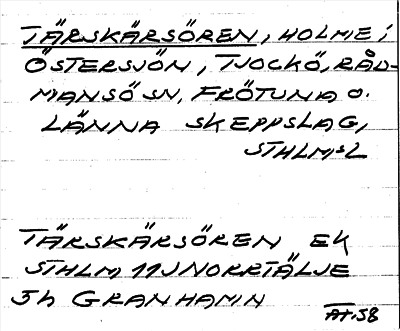 TÄRSKÄRSÖREN, HOLME i
ÖSTERSJÖN, TJOCKÖ, RÅD-
MANSÖ SN, FRÖTUNA O.
LÄNNA SKEPPSLAG,
STHLM,S L
TÄRSKÄRSÖREN EK
STHLM 11J NORRTÄLJE
5h GRANHAMN